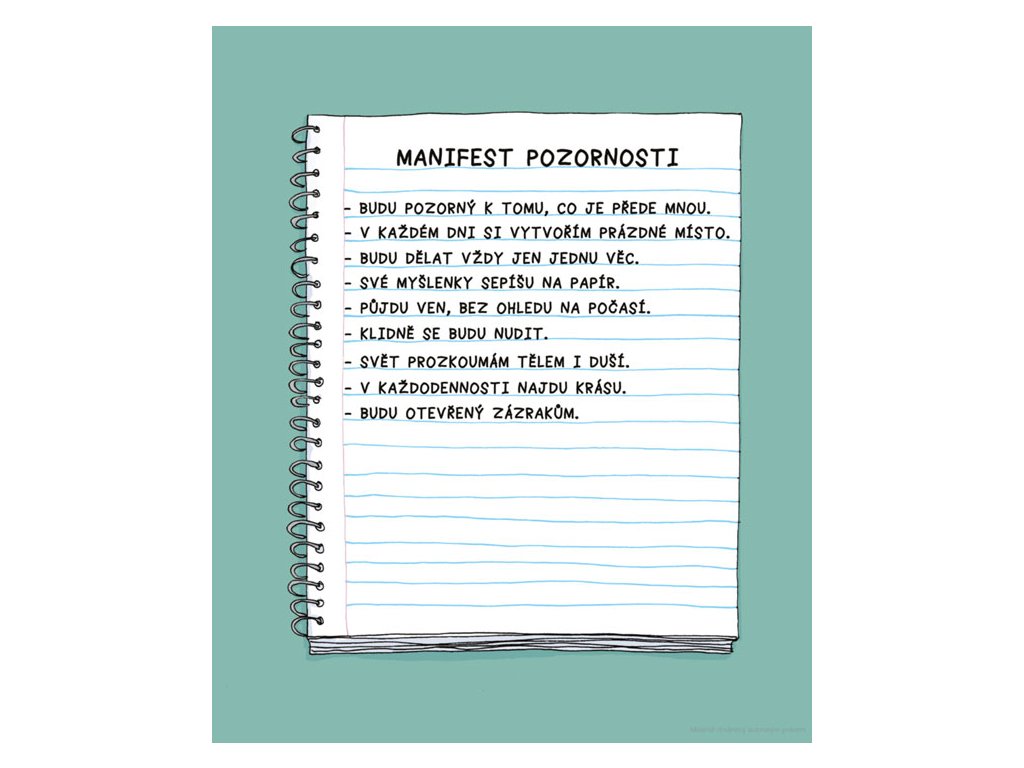 MANIFEST POZORNOSTI
- BUDU POZORNÝ K TOMU, CO JE PŘEDE MNOU.
- V KAŽDÉM DNI SI VYTVOŘÍM PRÁZDNÉ MÍSTO.
- BUDU DĚLAT VŽDY JEN JEDNU VĚC.
- SVÉ MYŠLENKY SEPÍŠU NA PAPÍR.
- PŮJDU VEN, BEZ OHLEDU NA POČASÍ.
- KLIDNĚ SE BUDU NUDIT.
- SVĚT PROZKOUMÁM TĚLEM I DUŠÍ.
- V KAŽDODENNOSTI NAJDU KRÁSU.
- BUDU OTEVŘENÝ ZÁZRAKŮM.